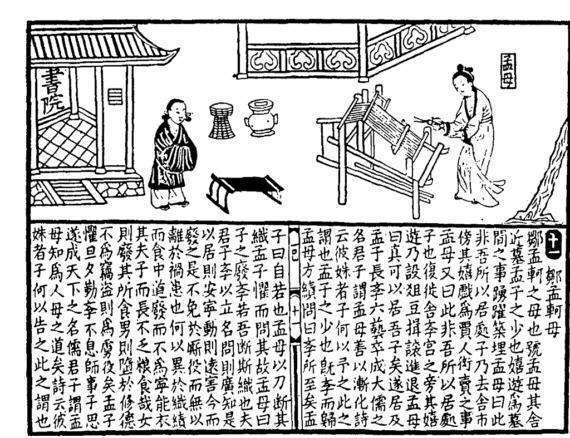 孟母
書院
十一 鄒孟軻母
鄒孟軻之母也號孟母其舍
近墓孟子之少也嬉遊為墓
間之事踴躍築埋孟母曰此
非吾所以居處子乃去舍市
傍其嬉戲為賈人衒賣之事
孟母又曰此非吾所以居處
子也復徙舍學宮之旁其嬉
遊乃設俎豆揖讓進退孟母
曰真可以居吾子矣遂居及
孟子長學六藝卒成大儒之
名君子謂孟母善以漸化詩
云彼姝者子何以予之此之
謂也孟子之少也既學而歸
孟母方績問曰學所至矣孟
十一
子曰自若也孟母以刀斷其
織孟子懼而問其故孟母曰
子之廢學若吾斷斯織也夫
君子學以立名問則廣知是
以居則安寧動則遠害今而
廢之是不免於廝役而無以
離於禍患也何以異於織績
而食中道廢而不為寧能衣
其夫子而長不乏糧食哉女
則廢其所食男則墮於修德
不為竊盜則為虜役矣孟子
懼旦夕勤學不息師事子思
遂成天下之名儒君子謂孟
母知為人母之道矣詩云彼
姝者子何以告之此之謂也